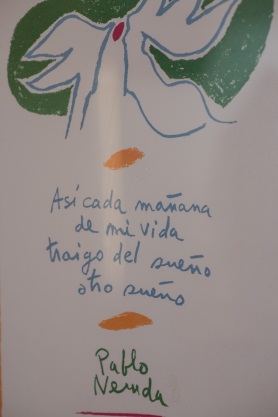 Así cada mañana
de mi vida
traigo del sueño
otro sueño
Pablo
Neruda